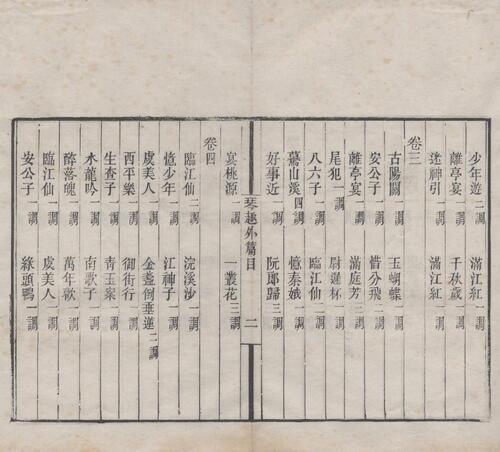 少年遊二調　滿江紅一調
離亭宴一調　千秋歲一調
迷神引一調　滿江紅一調
卷三
古陽關一調　玉蝴蝶一調
安公子一調　惜分飛二調
離亭宴一調　滿庭芳二調
尾犯一調　尉遲杯一調
八六子一調　臨江仙一調
驀山溪四調　憶秦娥一調
好事近一調　阮郎歸三調
琴趣外篇目　二
宴桃源一調　一叢花三調
卷四
臨江仙二調　浣溪沙一調
憶少年一調　江神子一調
虞美人一調　金盞倒垂蓮二調
西平樂一調　御街行一調
生查子一調　青玉案一調
水龍吟一調　南歌子一調
醉落魄一調　萬年歡一調
臨江仙一調　虞美人一調
安公子一調　綠頭鴨一調